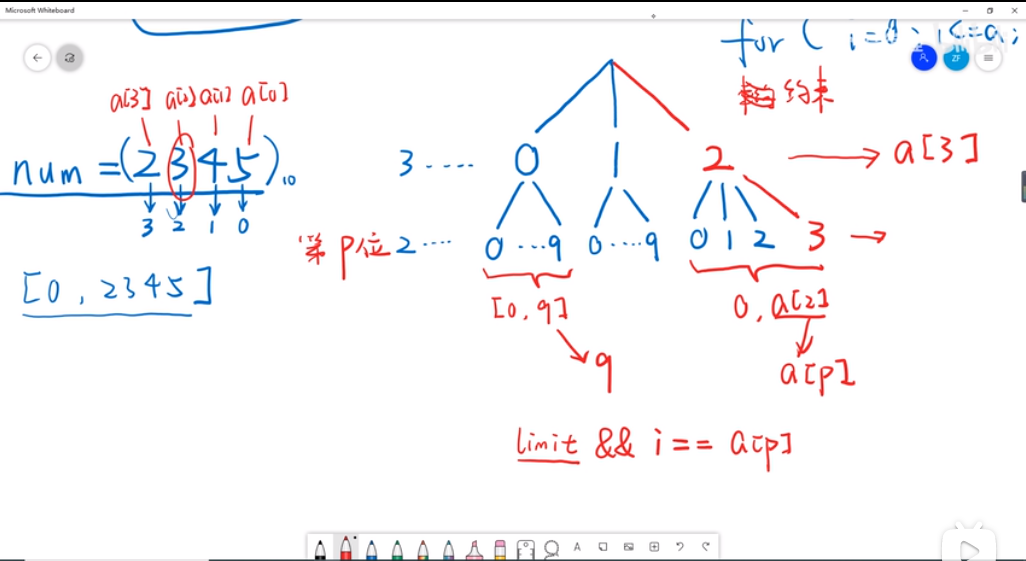 Microsoft Whiteboard
for ( i=0; i<=a;
ZF
约束
a[3] a[2] a[1] a[0]
num =(2345)10
3 2 1 0
[0, 2345]
3 .... 0 1 2 → a[3]
第p位 2 .... 0 ...9 0 ....9 0 1 2 3 →
[0, 9] 0, a[2]
9 a[p]
limit && i == a[p]
A